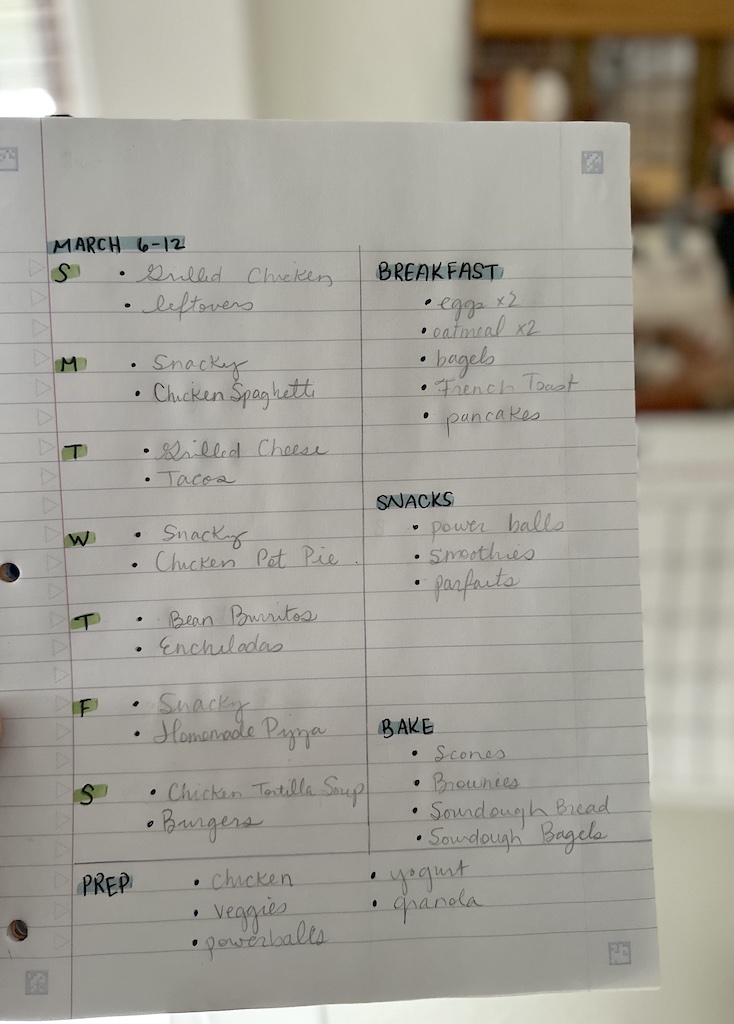 MARCH 6-12
S
• Grilled Chicken
• leftovers
M
• Snacky
• Chicken Spaghetti
T
• Grilled Cheese
• Tacos
W
• Snacky
• Chicken Pot Pie.
T
• Bean Burritos
• Enchiladas
F
• Snacky
• Homemade Pizza
S
• Chicken Tortilla Soup
• Burgers
BREAKFAST
• eggs x2
• oatmeal x2
• bagels
• French Toast
• pancakes
SNACKS
• power balls
• smoothies
• parfaits
BAKE
• Scones
• Brownies
• Sourdough Bread
• Sourdough Bagels
PREP
• chicken
• veggies
• powerballs
• yogurt
• granola